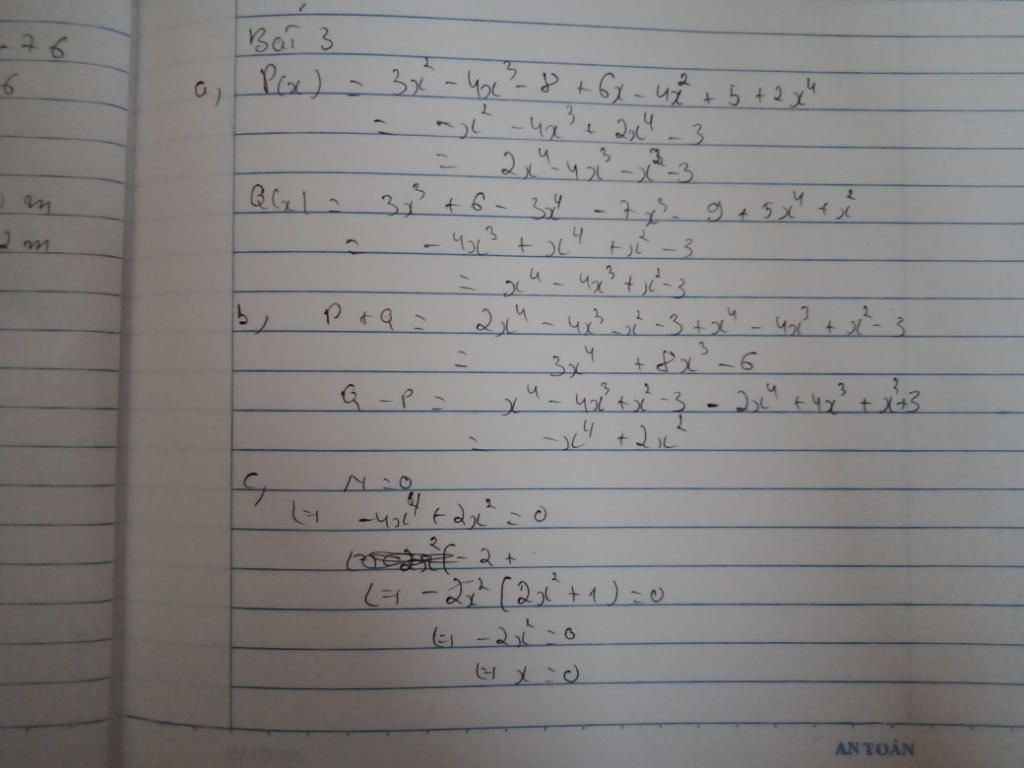 - 76
6
m
2 m
Bài 3
a, P(x) = 3x² - 4x³ - 8 + 6x - 4x² + 5 + 2x⁴
= -x² - 4x³ + 2x⁴ - 3
= 2x⁴ - 4x³ - x² - 3
Q(x) = 3x³ + 6 - 3x⁴ - 7x³ - 9 + 5x⁴ + x²
= -4x³ + x⁴ + x² - 3
= x⁴ - 4x³ + x² - 3
b, P + Q = 2x⁴ - 4x³ - x² - 3 + x⁴ - 4x³ + x² - 3
= 3x⁴ + 8x³ - 6
Q - P = x⁴ - 4x³ + x² - 3 - 2x⁴ + 4x³ + x² + 3
= -x⁴ + 2x²
c, M = 0
(=) -4x⁴ + 2x² = 0
- 2 +
(=) -2x² (2x² + 1) = 0
(=) -2x² = 0
(=) x = 0
AN TOÀN